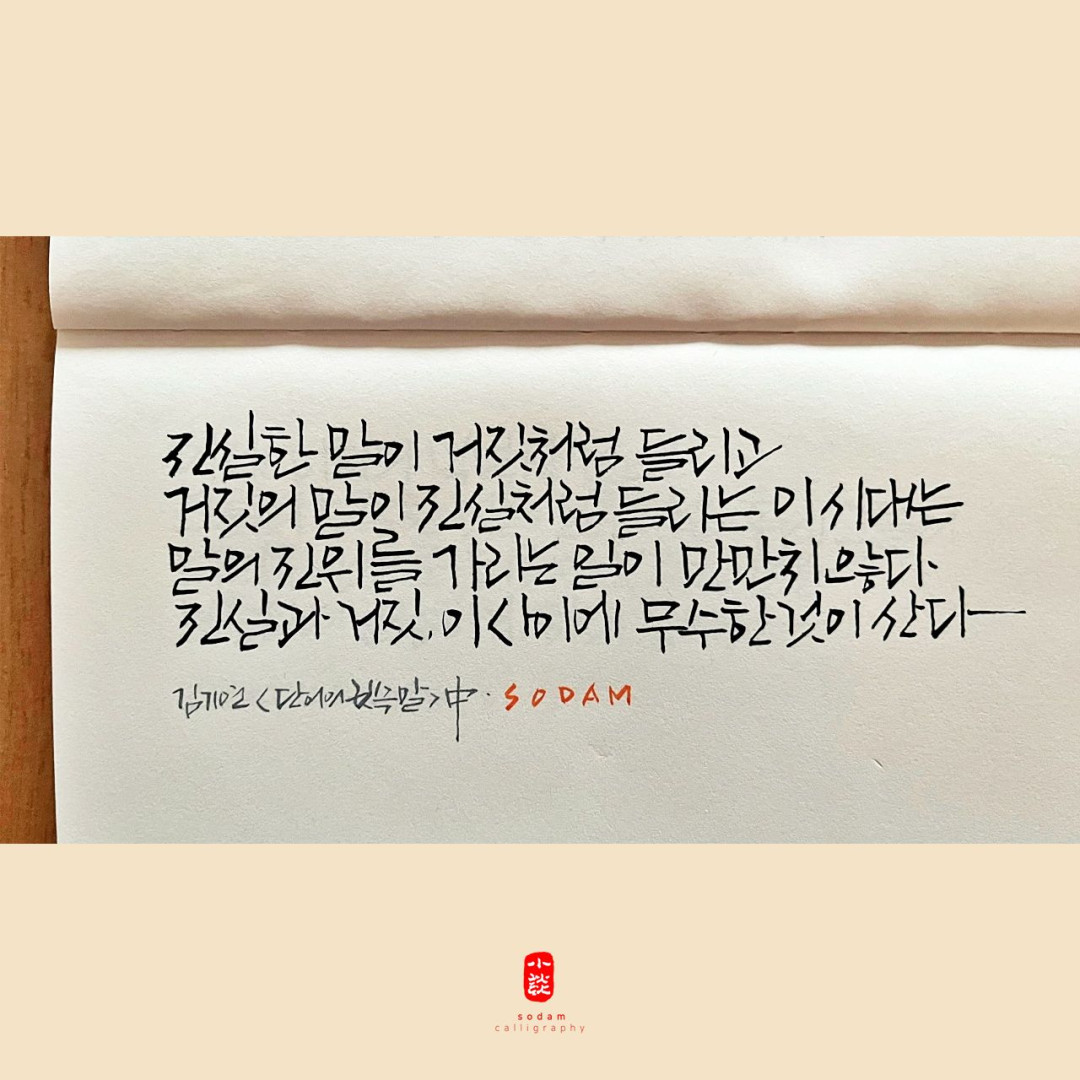 진실한 말이 거짓처럼 들리고
거짓의 말이 진실처럼 들리는 이 시대는
말의 진위를 가리는 일이 만만치 않다.
진실과 거짓, 이 사이에 무수한 것이 산다
<단어의 집 말> 中. SODAM
小談
sodam
calligraphy